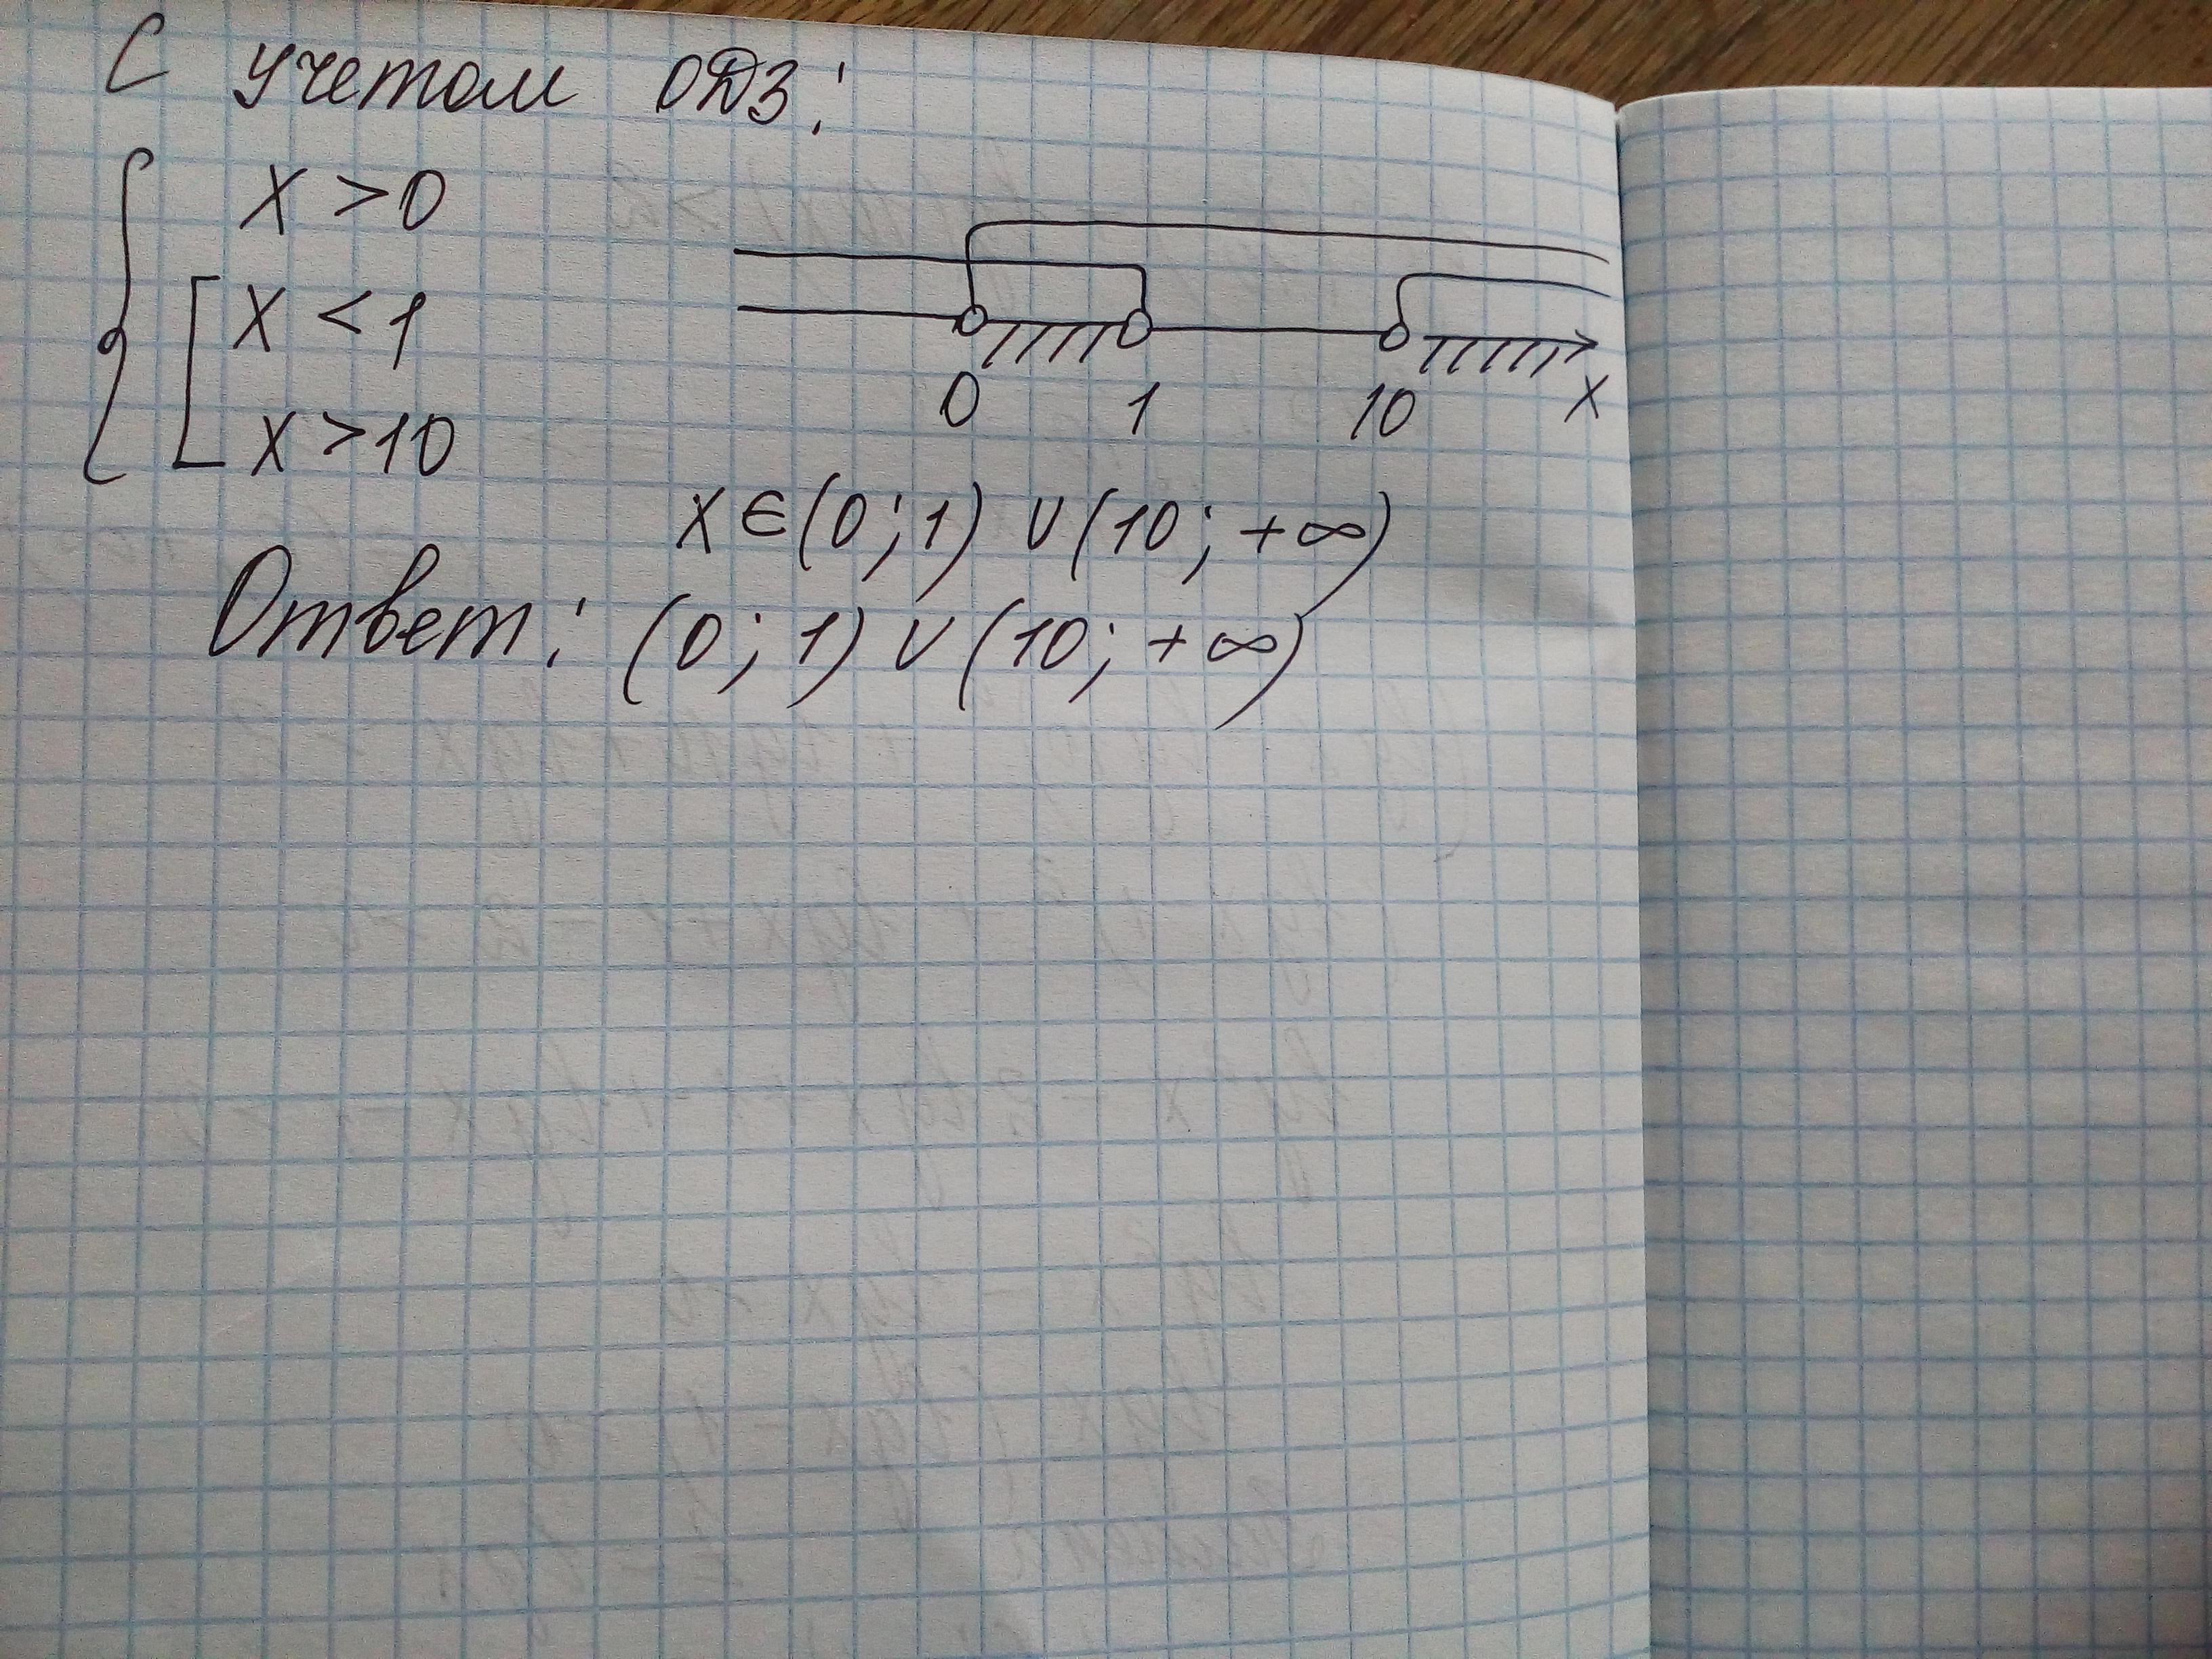 С учетом ОДЗ:
x > 0
x < 1
x > 10
0 1 10 x
x ∈ (0; 1) ∪ (10; +∞)
Ответ: (0; 1) ∪ (10; +∞)